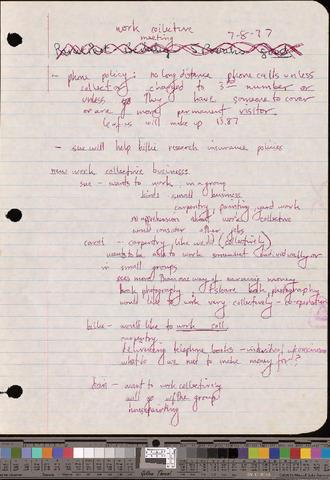 work collective
meeting
7-8-77
good
- phone policy: no long distance phone calls unless
collect or charged to 3rd number or
unless they have someone to cover
or are a more permanent visitor.
6 of us will make up 13.87
- sue will help billie research insurance policies
new work collective business
sue - wants to work in a group
kinds small business
carpentry, painting, yard work
no apprehension about work collective
would consider other jobs
carol - carpentry like weld (collectively)
wants to be able to work somewhat individually or
in small groups
sees more than one way of earning money
book photography
would like to work very collectively - cooperation
billie - would like to work coll.
carpentry
delivering telephone books - individual
what do we need to make money for?
- want to work collectively
will go w/the group
housepainting